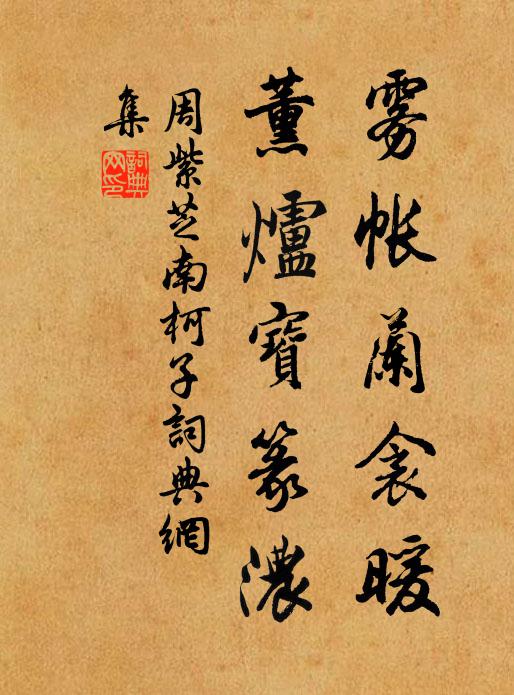 雾帳蘭衾暖
薰爐寶篆濃
周紫芝南柯子詞典網
集
詞典
网印